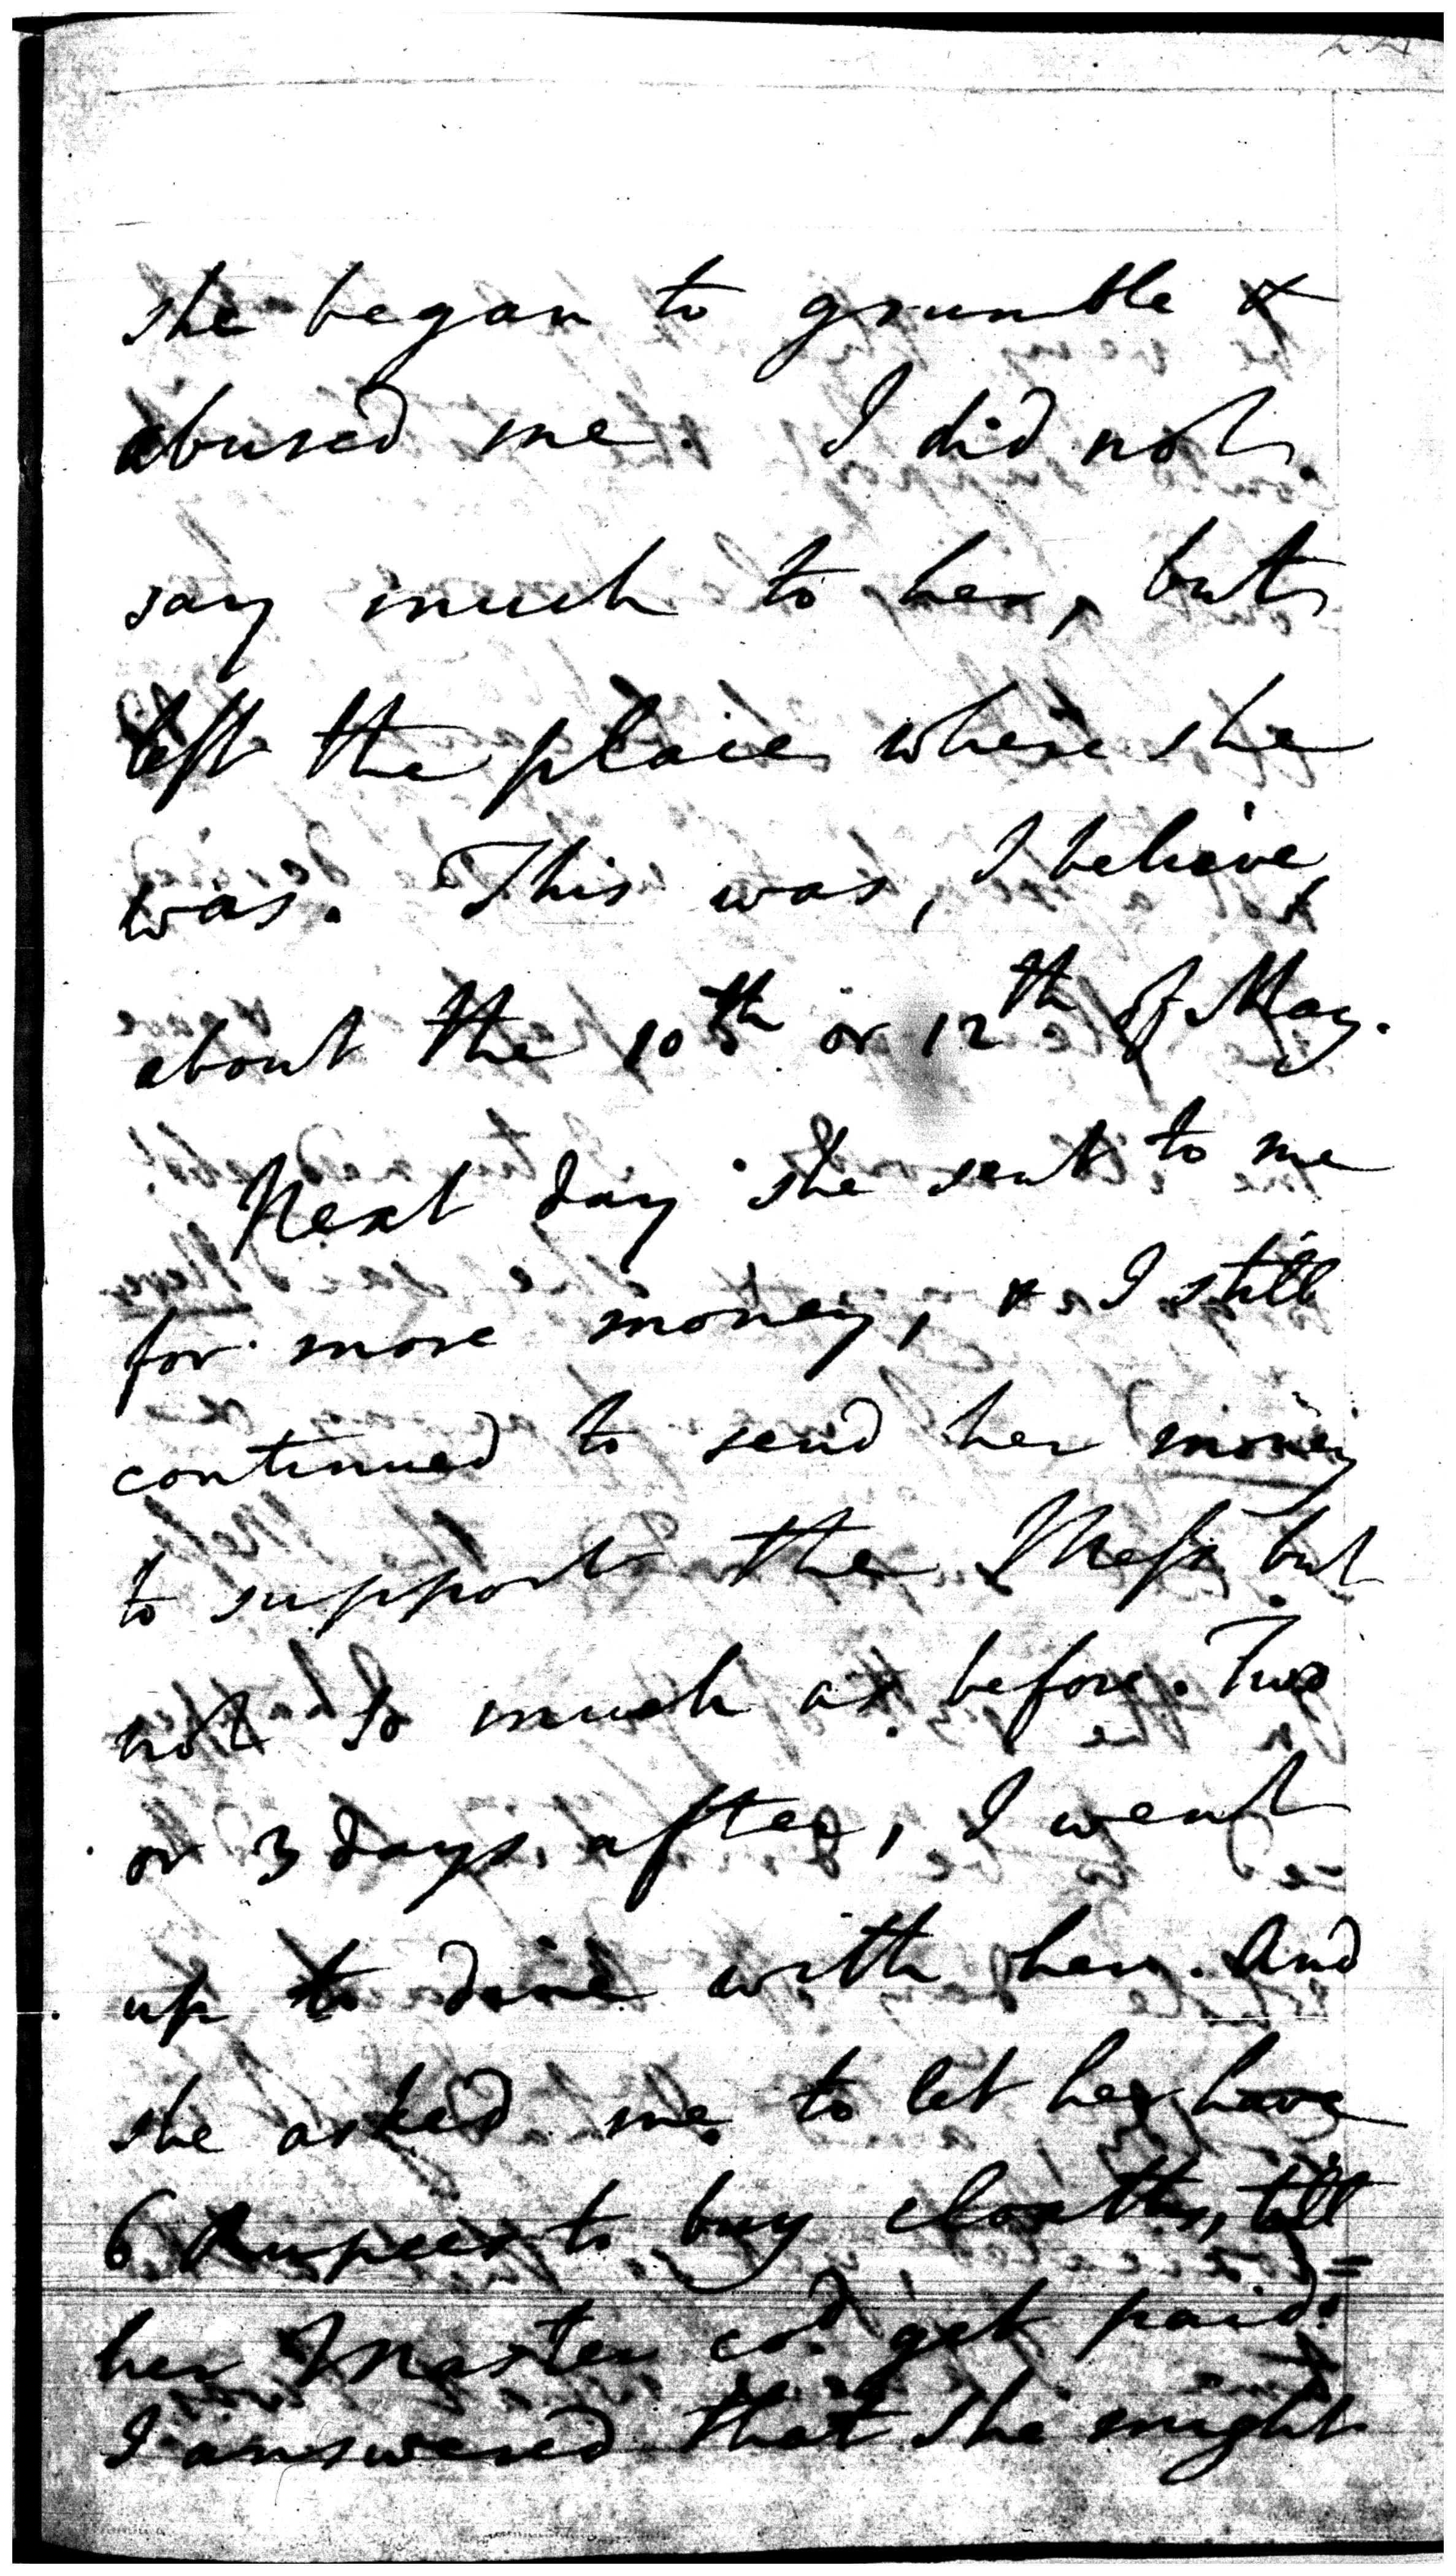 she began to grumble &
abused me. I did not
say much to her, but
left the place where she
was. This was, I believe,
about the 10th or 12th of May.
Next day she sent to me
for more money, & I still
continued to send her money
to support the Mess but
not so much as before. Two
or 3 days after, I went
up to dine with her. And
she asked me to let her have
6 Rupees to buy cloaths, till
her Master cod. get paid.
I answered that she might